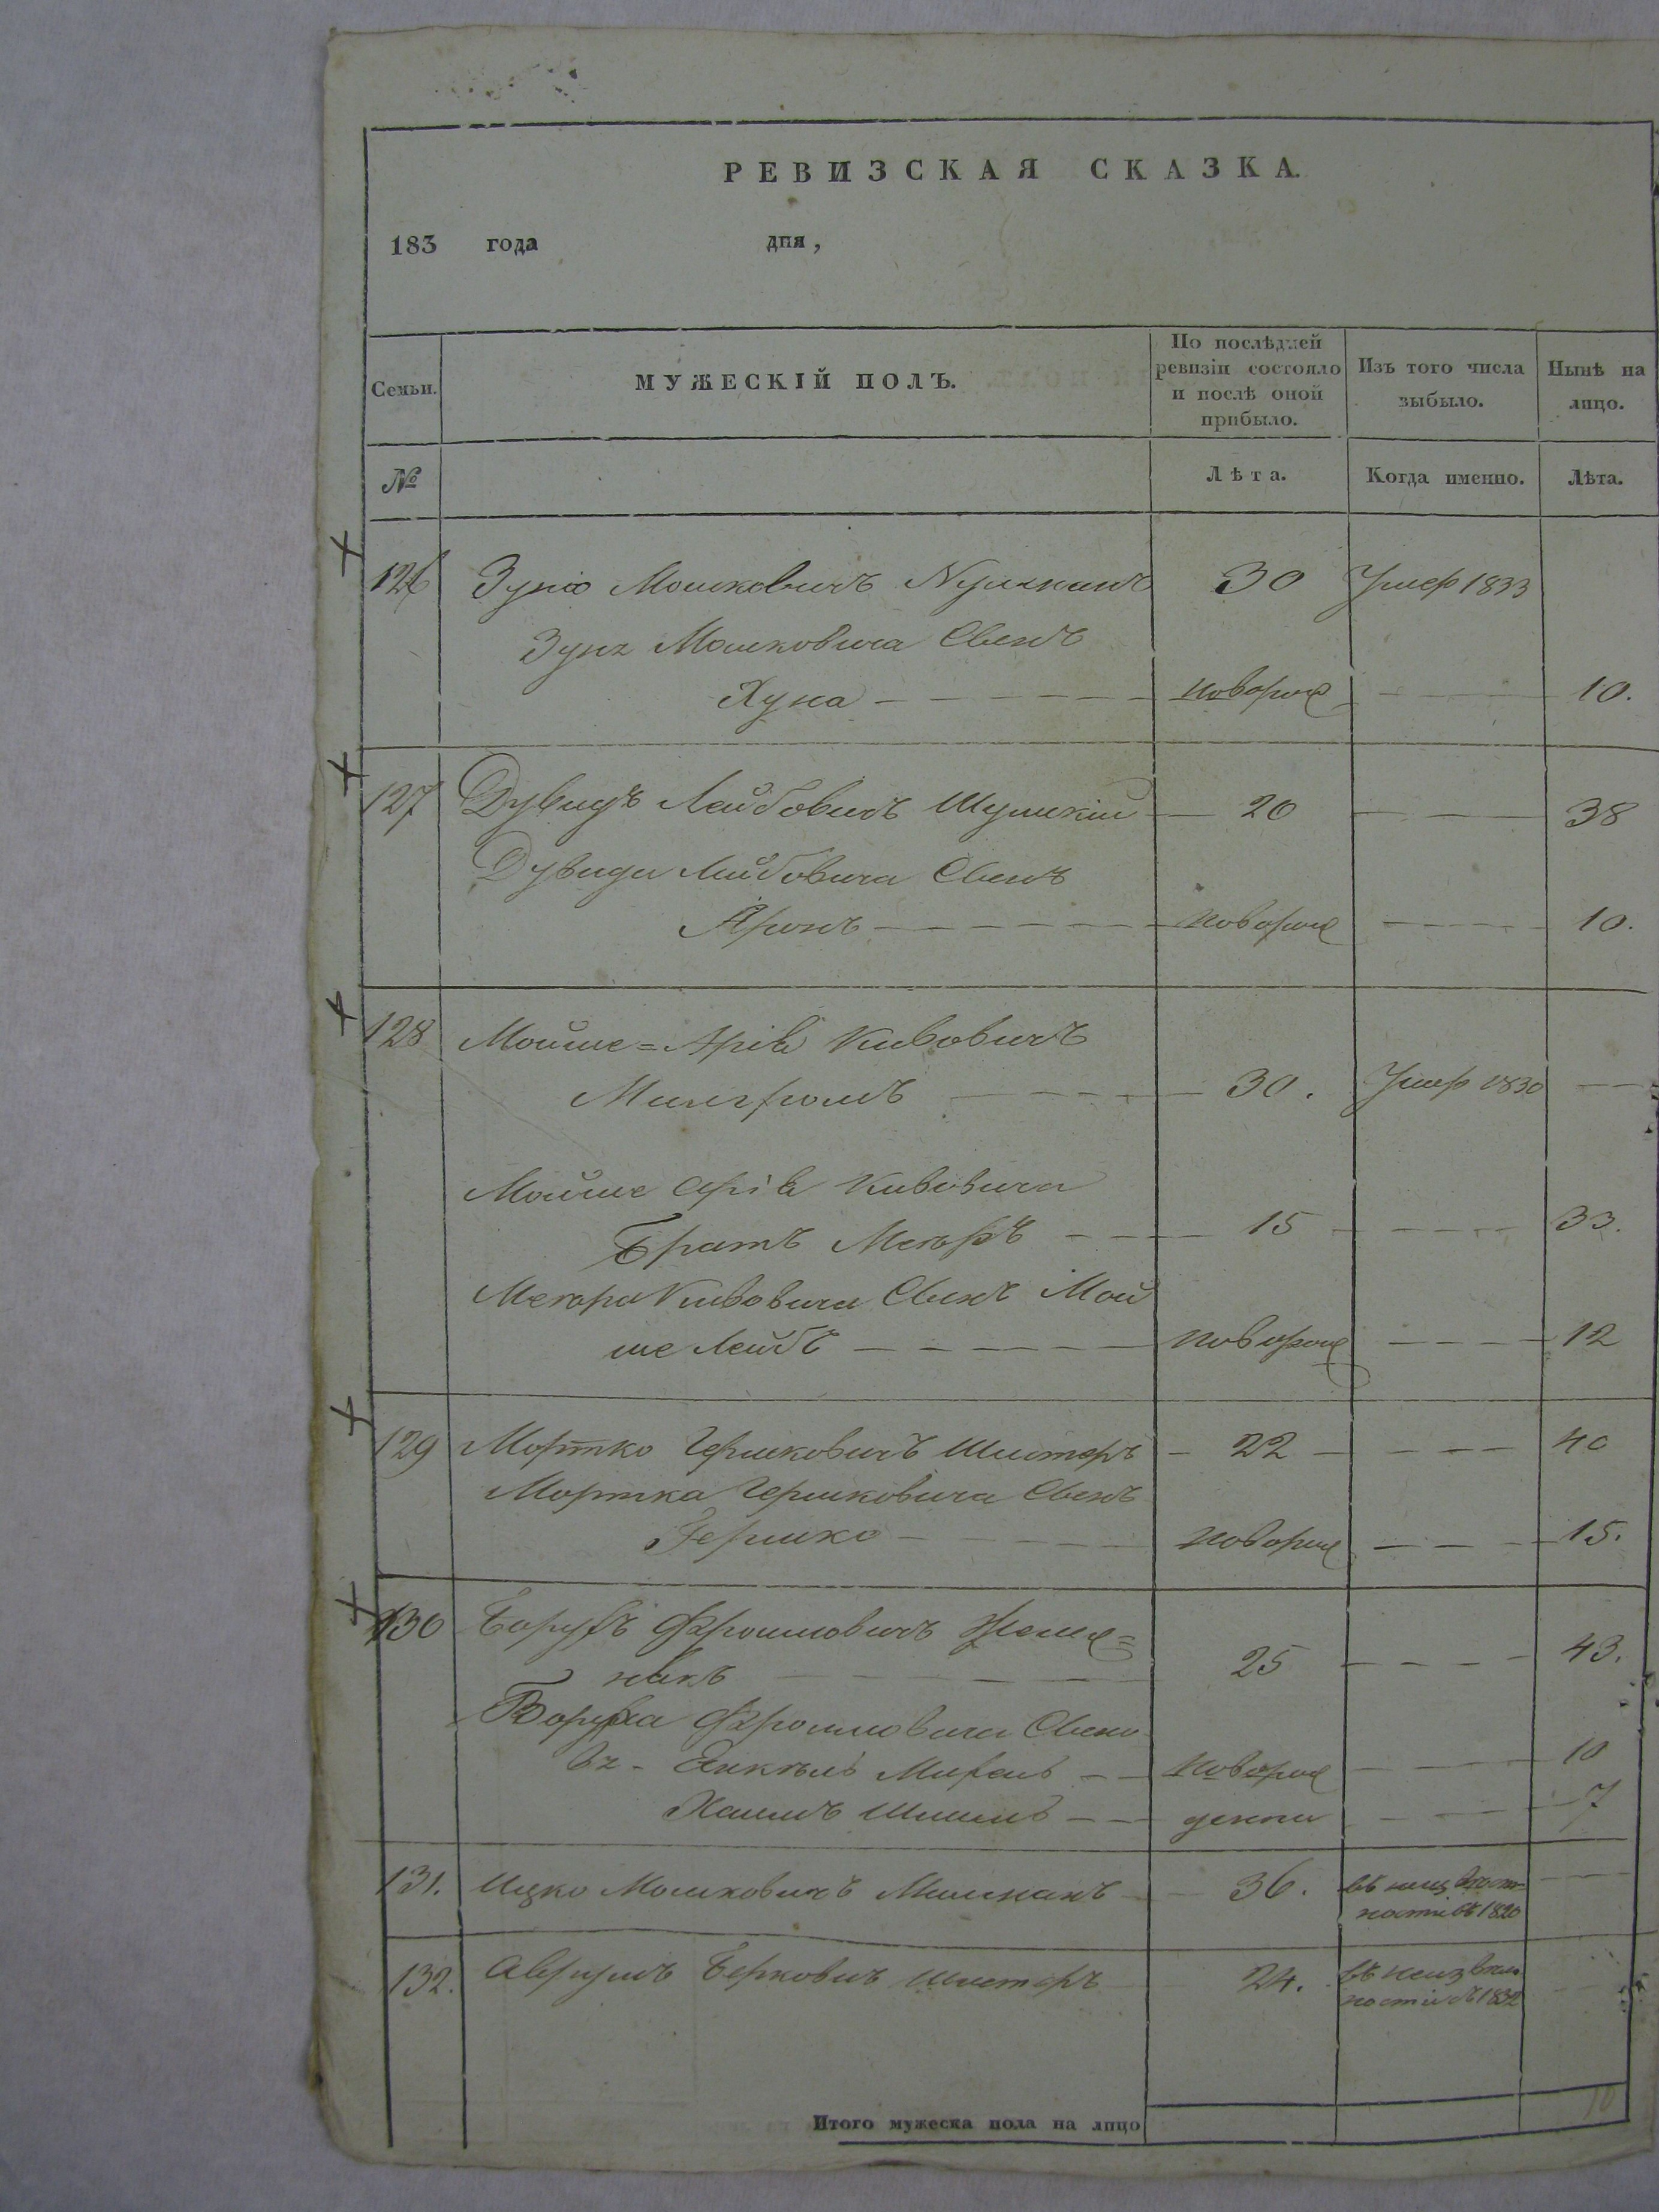 РЕВИЗСКАЯ СКАЗКА.
183 года дня,
Семьи. МУЖЕСКІЙ ПОЛЪ. По послѣдней ревизіи состояло и послѣ оной прибыло. Изъ того числа выбыло. Нынѣ на лицо.
№ Лѣта. Когда именно. Лѣта.
126 Мошковичъ 30 Умер 1833
Мошковича Сынъ
Хуна — новорож — 10.
127 Дувидъ Лейбовичъ Шумскій — 20 — 38
Дувида Лейбовича Сынъ
Аронъ — новорож — 10.
128 Мойше=Аріе Кивовичъ
Милгромъ — 30. Умер 1830 —
Мойше Аріе Кивовича
Братъ Мееръ — 15 — 33.
Меера Кивовича Сынъ Мой
ше Лейбъ — новорож — 12
129 Мортко Гершковичъ Шистеръ — 22 — 40
Мортка Гершковича Сынъ
Гершко — новорож — 15.
130 Борухъ Фроимовичъ
25 — 43.
Боруха Фроимовича Сыно
вя - Янкель — новорож — 10
Хаимъ — — 7
131. Ицко Мошковичъ — 36. въ неизвѣст
ности въ 1820 —
132. Аврумъ Берковичъ Шистеръ 24. въ неизвѣст
ности въ 1832
10
Итого мужеска пола на лицо